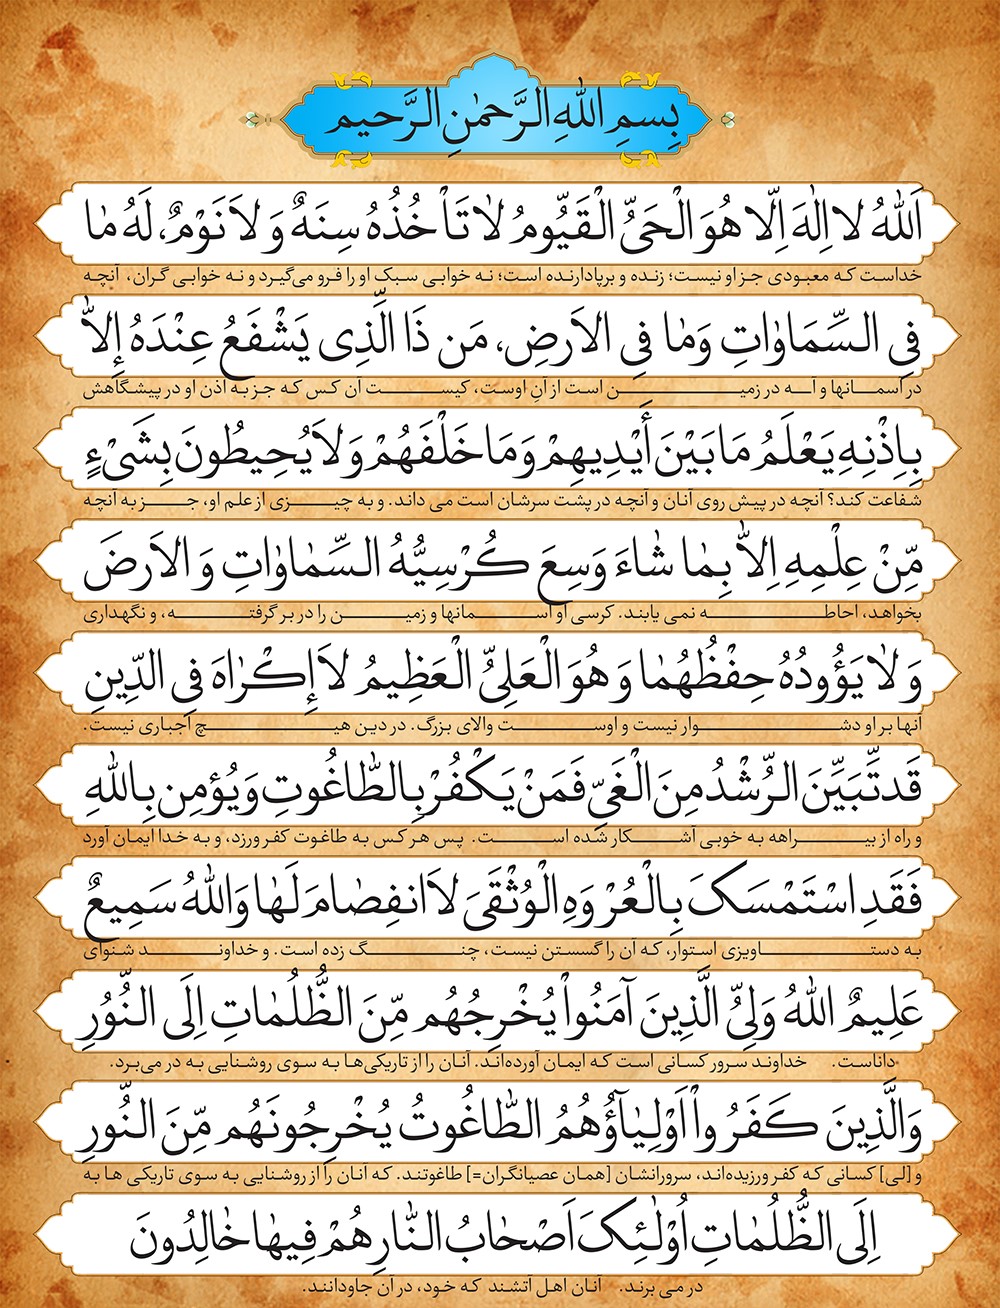 بِسمِ اللهِ الرَّحمٰنِ الرَّحیم
اَللهُ لا اِلٰهَ اِلّا هُوَ الْحَیُّ الْقَیُّومُ لاٰ تَأْخُذُهُ سِنَهٌ وَ لاَ نَوْمٌ، لَهُ مٰا
خداست که معبودی جز او نیست؛ زنده و برپادارنده است؛ نه خوابی سبک او را فرو می‌گیرد و نه خوابی گران، آنچه
فِی السِّمَاوٰاتِ وَمٰا فِی الاَرضِ، مَن ذَا الَّذِی یَشْفَعُ عِنْدَهُ إِلاّٰ
در آسمانها و آنـه در زمیـــن است از آنِ اوست، کیســـت آن کس که جز به اذن او در پیشگاهش
بِاِذْنِهِ یَعْلَمُ مَا بَیْنَ أَیْدِیهِمْ وَمَا خَلْفَهُمْ وَلاَ یُحِیطُونَ بِشَیْءٍ
شفاعت کند؟ آنچه در پیش روی آنان و آنچه در پشت سرشان است می داند. و به چیـــزی از علم او، جـــز به آنچه
مِّنْ عِلْمِهِ اِلاّٰ بِمٰا شٰاءَ وَسِعَ کُرْسِیُّهُ السِّمٰاوٰاتِ وَ الاَرضَ
بخواهد، احاطـــه نمی یابند. کرسی او آســـمانها و زمیـــن را در بر گرفتـــه، و نگهداری
وَ لاٰ یَؤُودُهُ حِفْظُهُمٰا وَ هُوَ الْعَلِیُّ الْعَظِیمُ لاَ إِکْرٰاهَ فِی الدِّینِ
آنها بر او دشـــوار نیست و اوســـت والای بزرگ. در دین هیـــچ اجباری نیست.
قَدتَّبَیَّنَ الرُّشْدُ مِنَ الْغَیِّ فَمَنْ یَکْفُرْ بِالطّٰاغُوتِ وَیُؤمِن بِاللهِ
و راه از بیـــراهه به خوبی آشـــکار شده اســـت. پس هر کس به طاغوت کفر ورزد، و به خدا ایمان آورد
فَقَدِ اسْتَمْسَکَ بِالْعُرْوَهِ الْوُثْقَیَ لاَ انفِصٰامَ لَهٰا وَاللهُ سَمِیعٌ
به دستـــاویزی استوار، که آن را گسستن نیست، چنـــگ زده است. و خداونـــد شنوای
عَلِیمٌ اللهُ وَلِیُّ الَّذِینَ آمَنُواْ یُخْرِجُهُم مِّنَ الظُّلُمٰاتِ اِلَی النُّوُرِ
داناست. خداوند سرور کسانی است که ایمان آورده‌اند. آنان را از تاریکی‌ها به سوی روشنایی به در می‌برد.
وَالَّذِینَ کَفَرُواْ اَوْلِیٰآؤُهُمُ الطّٰاغُوتُ یُخْرِجُونَهُم مِّنَ النُّورِ
و[لی] کسانی که کفر ورزیده‌اند، سرورانشان [همان عصیانگران=] طاغوتند. که آنان را از روشنایی به سوی تاریکی ها به
اِلَی الظُّلُمَاتِ اُوْلٰئِکَ اَصْحٰابُ النّٰارِ هُمْ فِیهٰا خٰالِدُونَ
در می برند. آنان اهل آتشند که خود، در آن جاودانند.